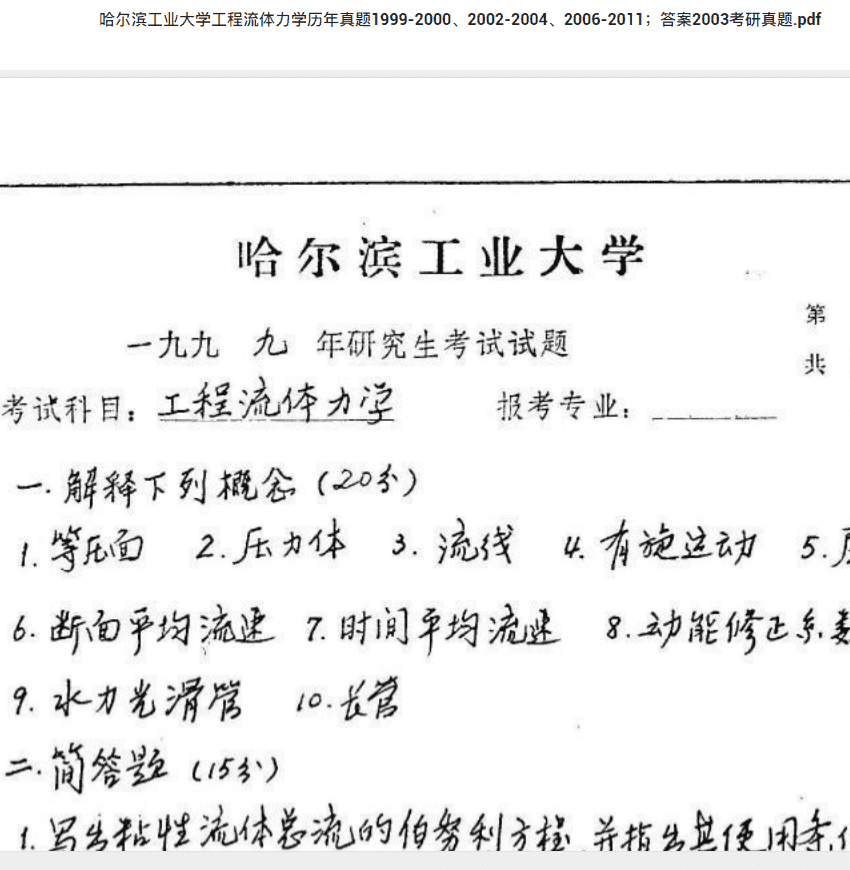 哈尔滨工业大学工程流体力学历年真题1999-2000、2002-2004、2006-2011；答案2003考研真题.pdf
哈尔滨工业大学
第
一九九 九 年研究生考试试题
共
考试科目：工程流体力学 报考专业：
一.解释下列概念（20分）
1.等压面 2.压力体 3.流线 4.有旋运动 5.
6.断面平均流速 7.时间平均流速 8.动能修正系数
9.水力光滑管 10.长管
二.简答题（15分）
1.写出粘性流体总流的伯努利方程,并指出其使用条件